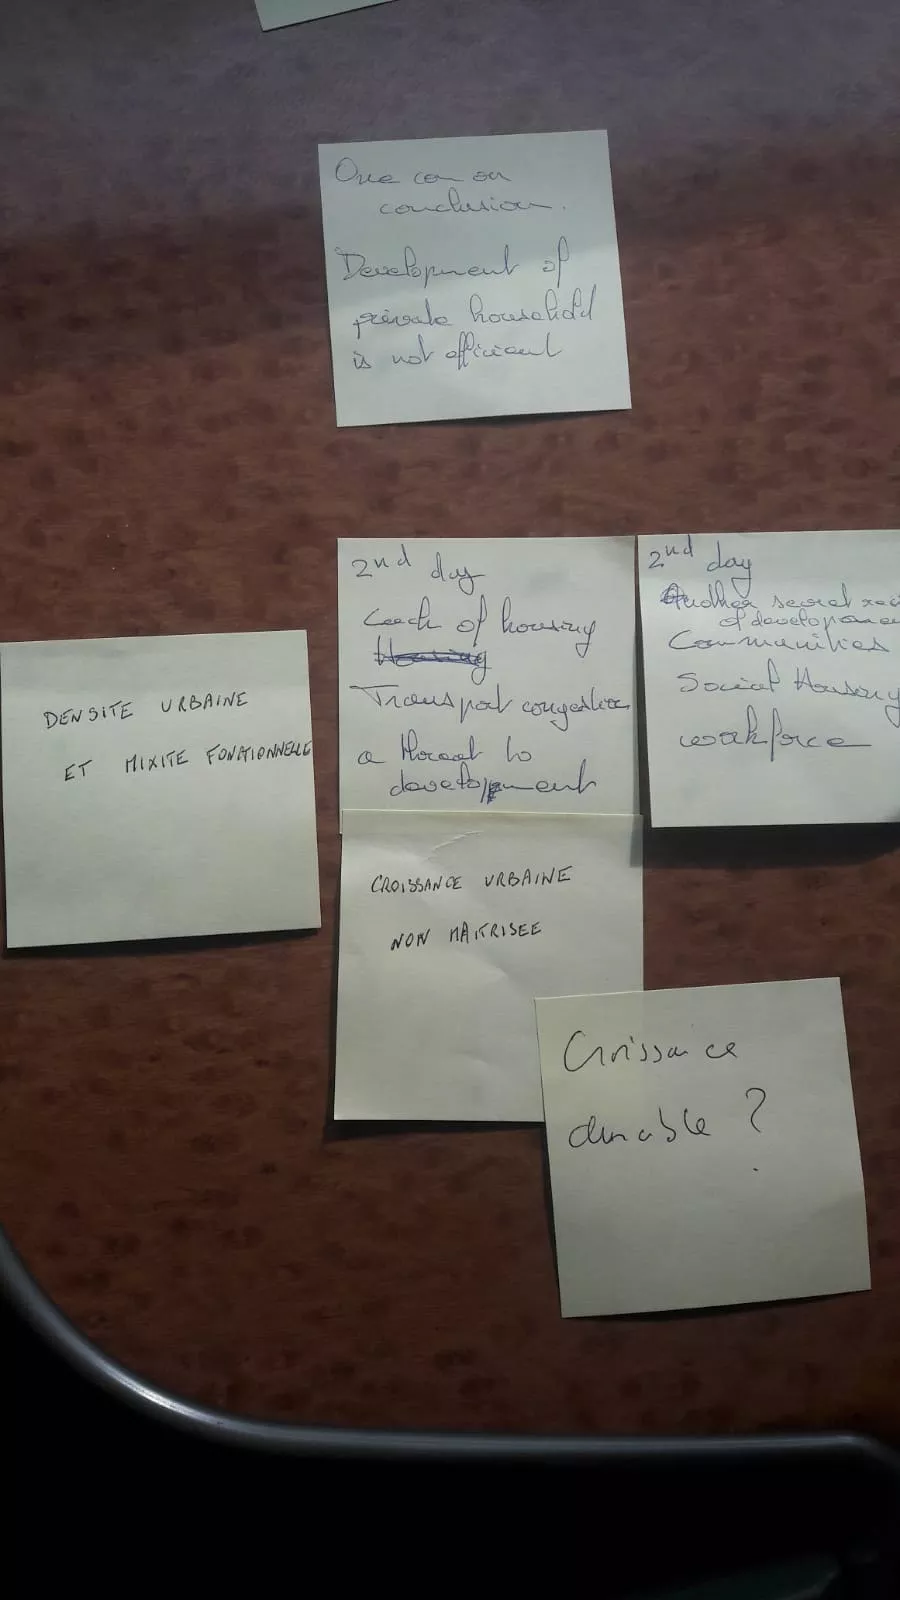 One con on
conclusion.
Development of
private household
is not efficient
2nd day
Lack of housing
Housing
Transport congestion
a threat to
development
2nd day
Another secret
of developmen
Communities
Social Housing
workforce
DENSITE URBAINE
ET MIXITE FONCTIONNELLE
CROISSANCE URBAINE
NON MAITRISEE
Croissance
durable ?